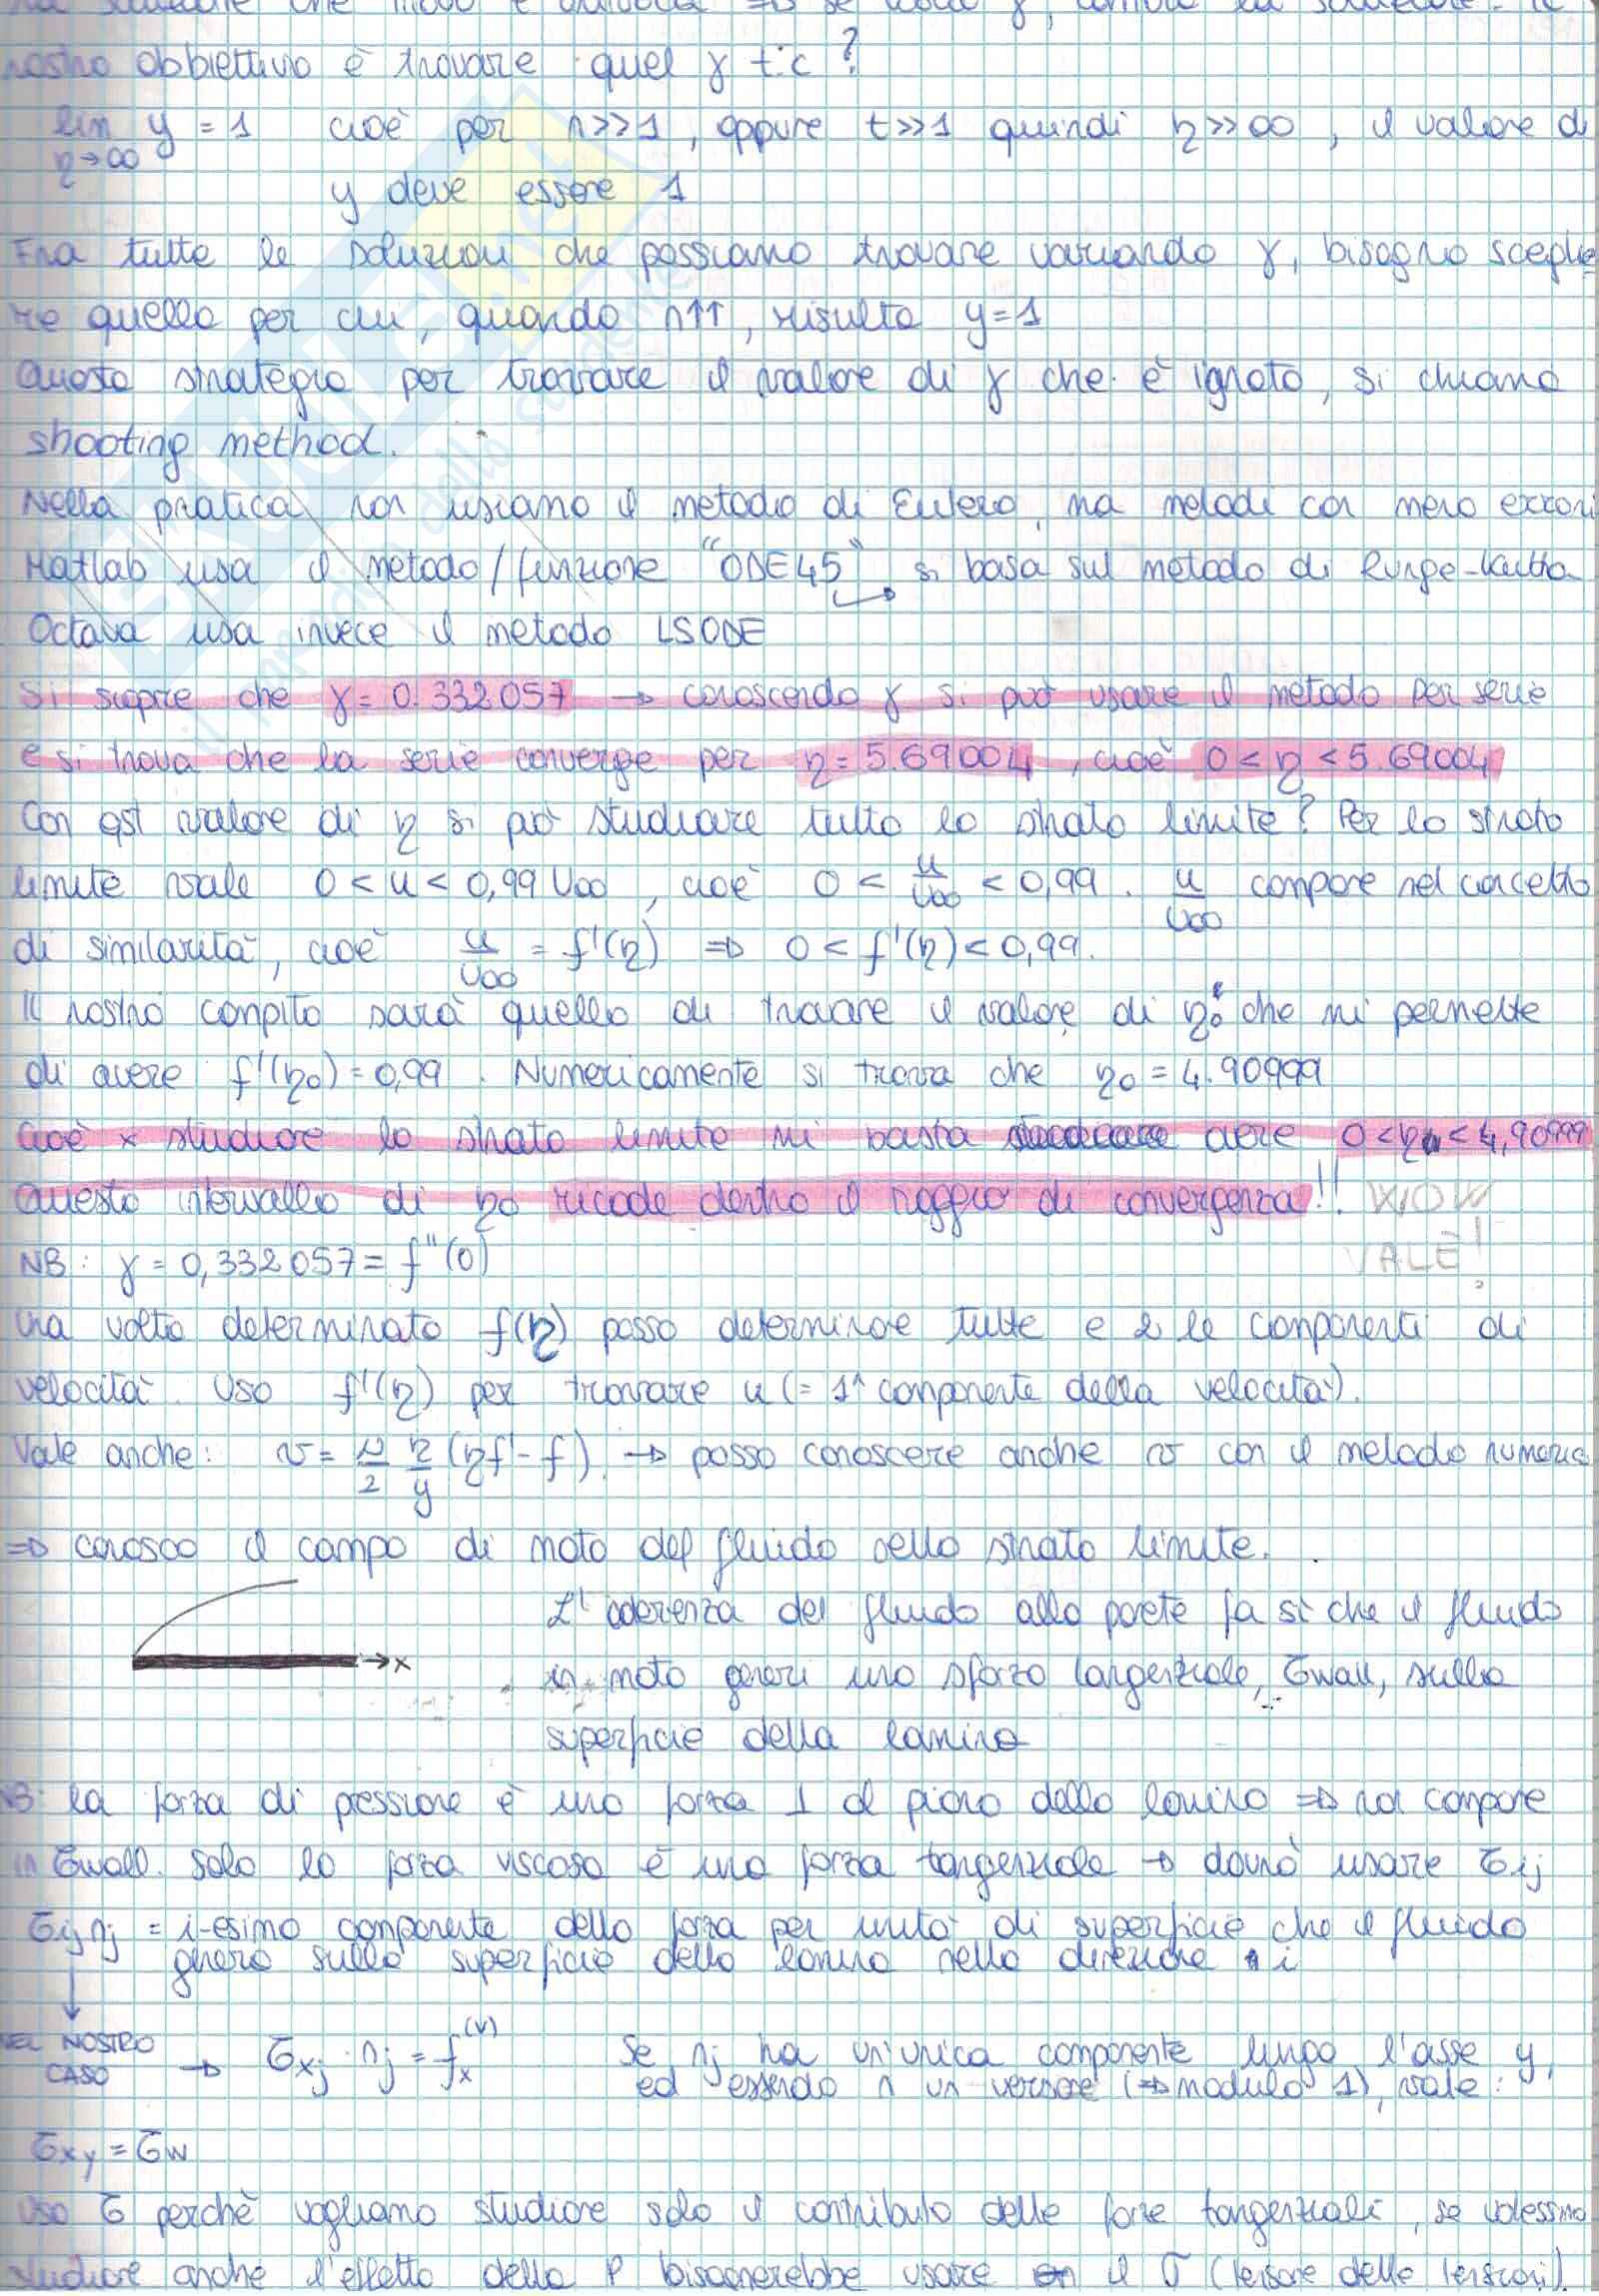 nostro obbiettivo è trovare quel γ t.c ?
lim y = 1 cioè per n>>1, oppure t>>1 quindi η>>∞, il valore di
η→∞
y deve essere 1
Fra tutte le soluzioni che possiamo trovare variando γ, bisogna sceglie
re quella per cui, quando n↑↑, risulta y=1
Questa strategia per trovare il valore di γ che è ignoto, si chiama
shooting method.
Nella pratica non usiamo il metodo di Eulero, ma metodi con meno errori
Matlab usa il metodo/funzione "ODE45" si basa sul metodo di Runge-Kutta
Octava usa invece il metodo LSODE
Si scopre che γ = 0.332057 → conoscendo γ si può usare il metodo per serie
e si trova che la serie converge per η = 5.69004, cioè 0 < η < 5.69004
Con qst valore di η si può studiare tutto lo strato limite? Per lo strato
limite vale 0 < u < 0,99 U∞, cioè 0 < u/U∞ < 0,99. u/U∞ compare nel concetto
di similarità, cioè u/U∞ = f'(η) ⇒ 0 < f'(η) < 0,99.
Il nostro compito sarà quello di trovare il valore di η0 che mi permette
di avere f'(η0) = 0,99. Numericamente si trova che η0 = 4.90999
cioè x studiare lo strato limite mi basta avere 0 < η < 4,90999
Questo intervallo di η0 ricade dentro il raggio di convergenza!! WOW
VALE!
NB: γ = 0,332057 = f''(0)
Una volta determinato f(η) posso determinare tutte e 2 le componenti di
velocità. Uso f'(η) per trovare u (= 1ª componente della velocità).
Vale anche: v = ν/2 η/y (ηf' - f). → posso conoscere anche v con il metodo numeric
⇒ conosco il campo di moto del fluido nello strato limite.
L'aderenza del fluido alla parete fa sì che il fluido
→ x
in moto generi uno sforzo tangenziale, τwall, sulla
superficie della lamina
NB: la forza di pressione è una forza ⊥ al piano della lamina ⇒ non compare
in τwall. Solo la forza viscosa è una forza tangenziale → dovrò usare τij
τij nj = i-esima componente della forza per unità di superficie che il fluido
genera sulla superficie della lamina nella direzione i
NEL NOSTRO
CASO → τxj · nj = fx(v) Se nj ha un'unica componente lungo l'asse y,
ed essendo n un versore (⇒ modulo 1), vale:
τxy = τw
Uso τ perchè vogliamo studiare solo il contributo delle forze tangenziali, se volessimo
studiare anche l'effetto della P bisognerebbe usare il σ (tensore delle tensioni).